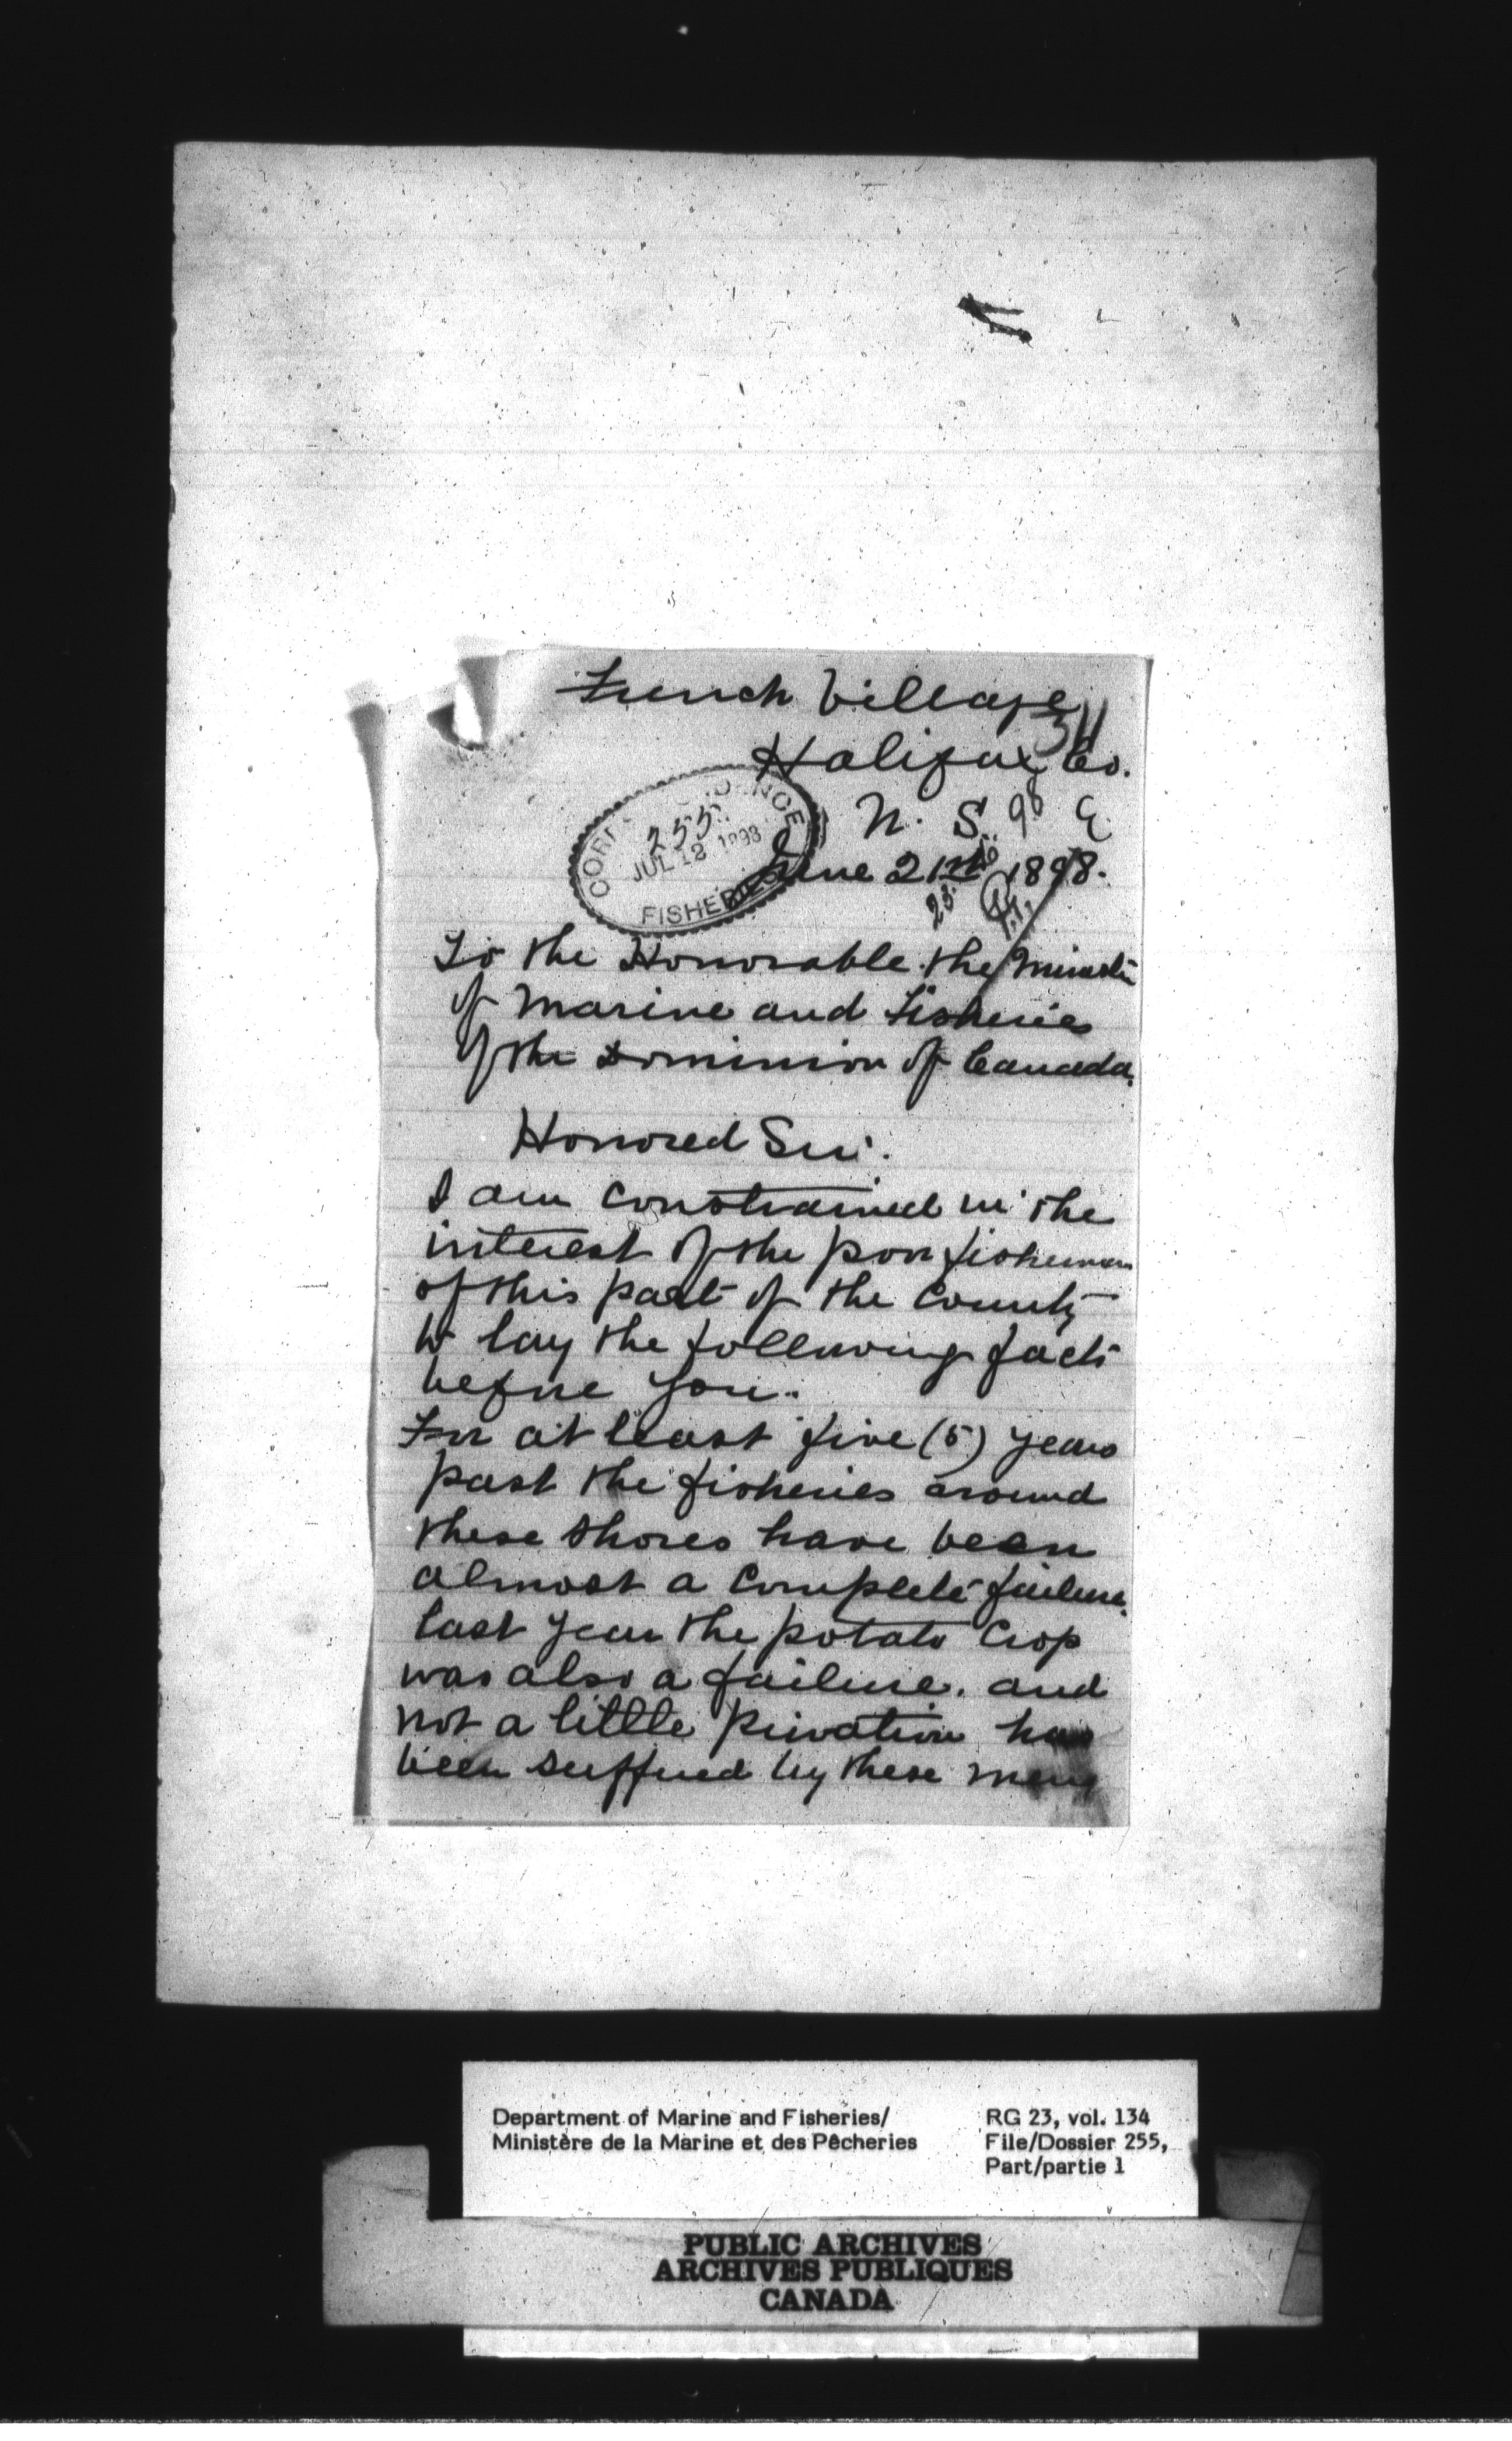 French Village
Halifax Co.
N. S.
June 21st 1898.
255
JUL 12 1898
FISHERIES
To the Honorable the Minister
of Marine and Fisheries
of the Dominion of Canada.
Honored Sir:
I am constrained in the
interest of the poor fishermen
of this part of the County
to lay the following facts
before you.
For at least five (5) years
past the fisheries around
these shores have been
almost a complete failure.
last year the potato Crop
was also a failure. and
not a little privation has
been suffered by these men
Department of Marine and Fisheries/
Ministère de la Marine et des Pêcheries
RG 23, vol. 134
File/Dossier 255,
Part/partie 1
PUBLIC ARCHIVES
ARCHIVES PUBLIQUES
CANADA